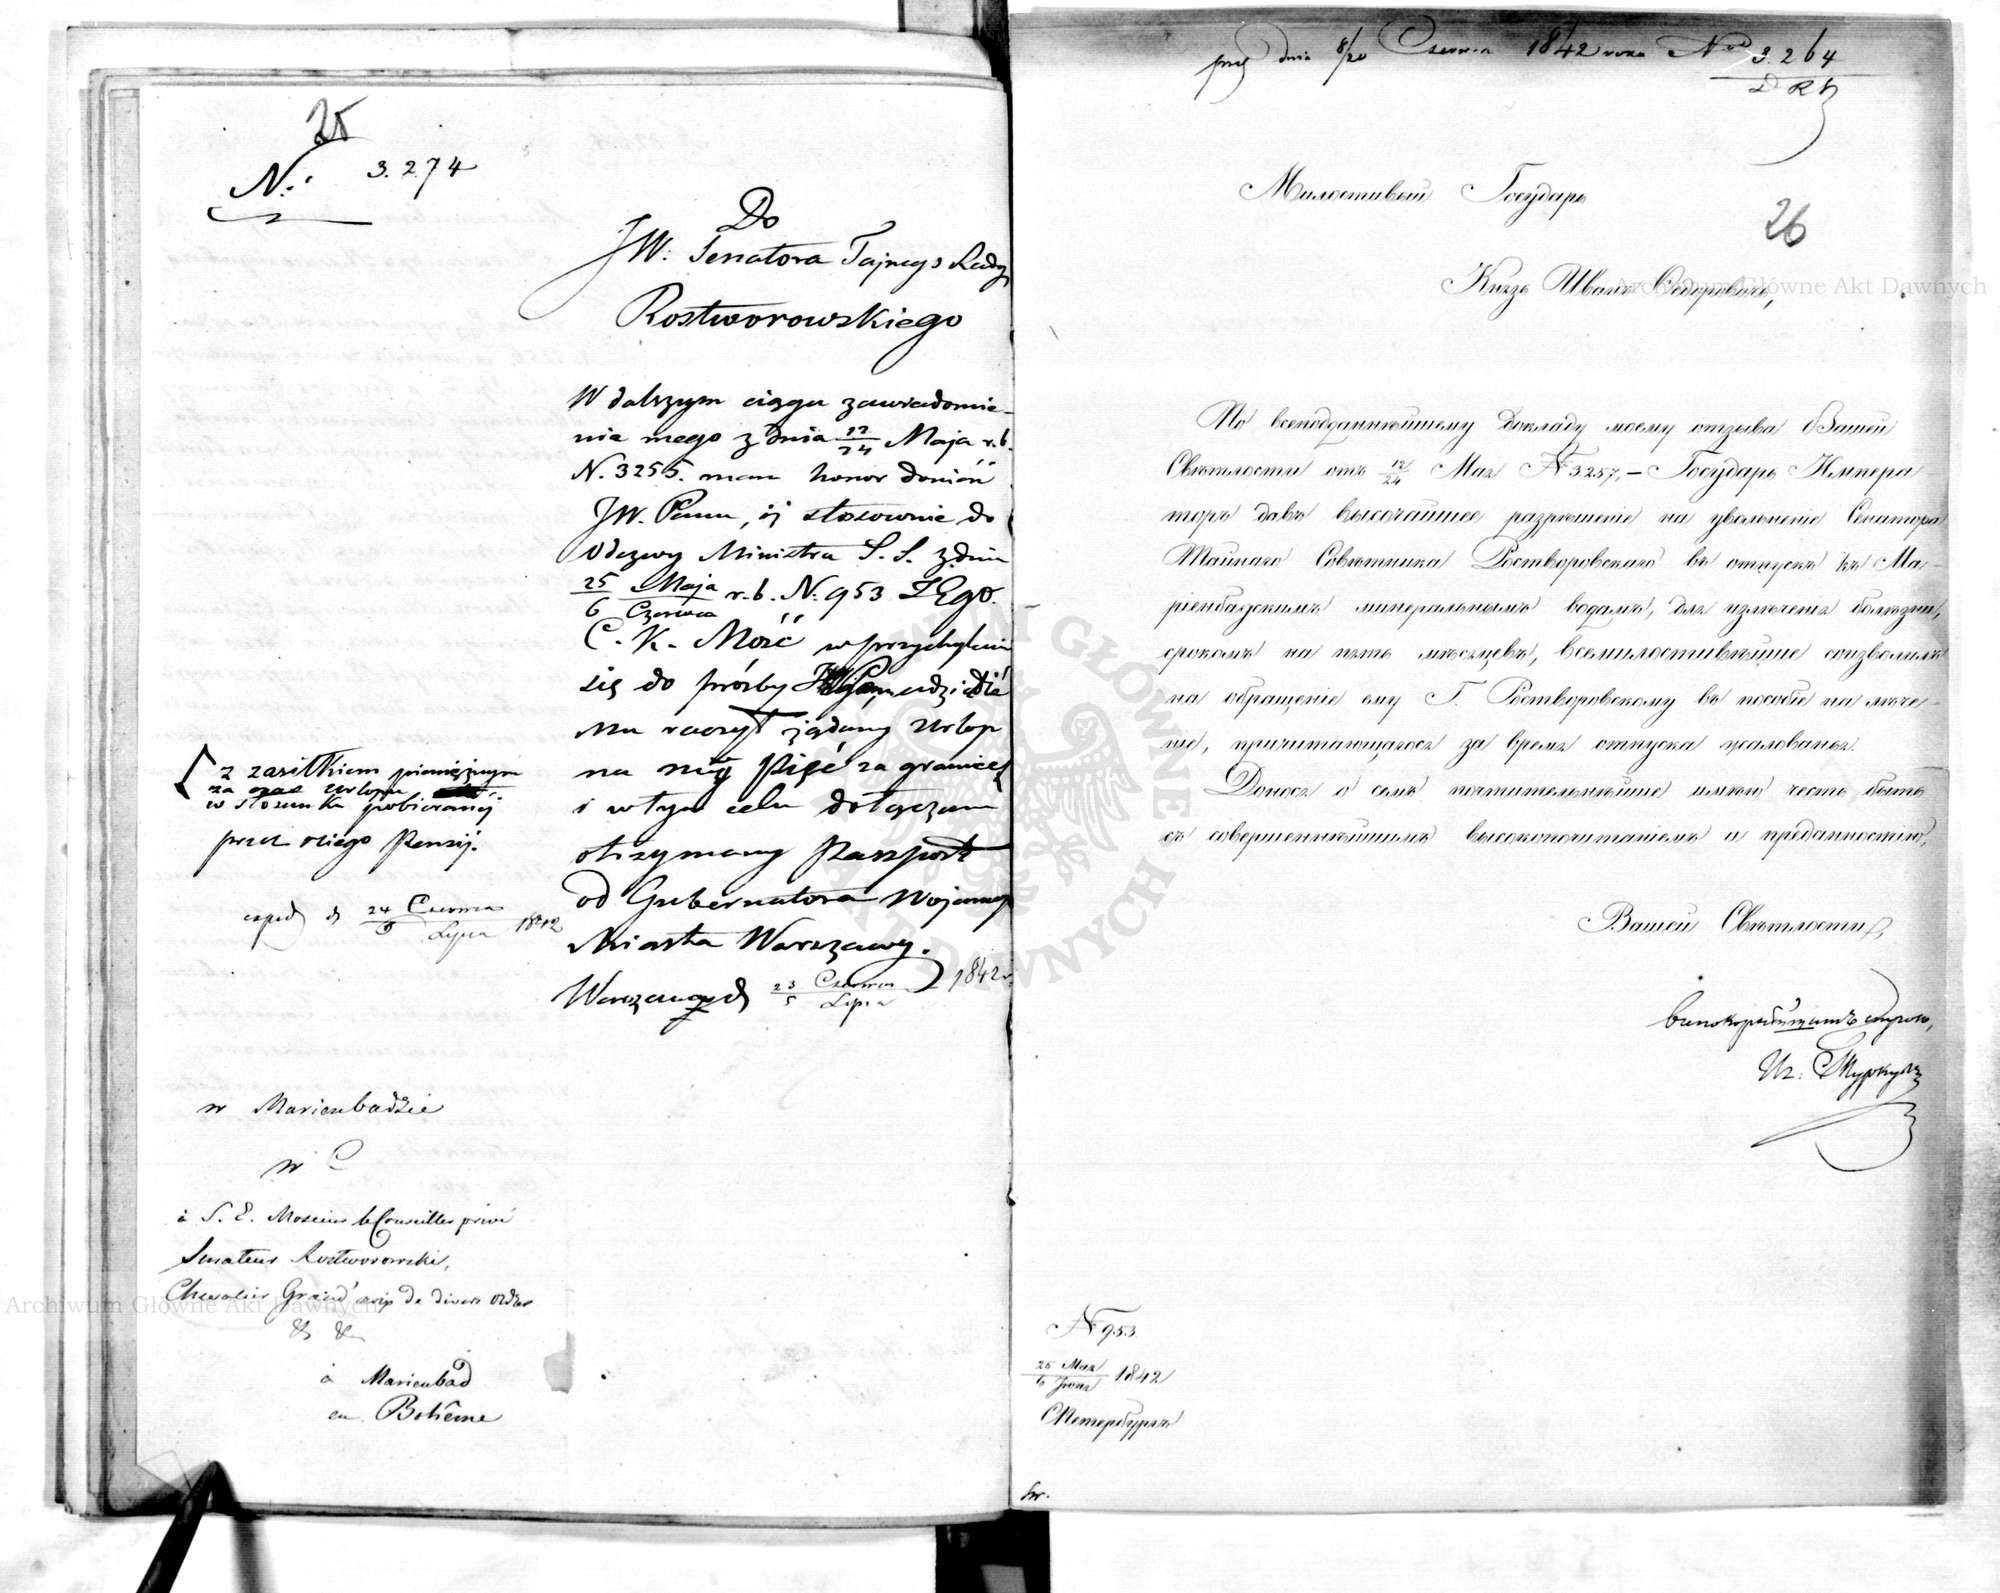 25
N: 3.274
Do
JW. Senatora Tajnego Radcy
Rostworowskiego
W dalszym ciągu zawiadomie-
nia mego z dnia 12/24 Maja r.b.
N. 3255. mam honor donieść
JW. Panu, iż stosownie do
Odezwy Ministra S. S. z dnia
25 Maja/6 Czerwca r.b. N. 953 Jego
C. K. Mość w przychyleniu
się do prośby udzielić
Mu raczył żądany Urlop
na za granicę
i w tym celu dołączam
otrzymany Paszport
od Gubernatora Wojennego
Miasta Warszawy.
Warszawa d 23 Czerwca/5 Lipca 1842 r.
z zasiłkiem pieniężnym
za czas Urlopu
w stosunku pobieranej
przez niego Pensji.
exped d 24 Czerwca/6 Lipca 1842
w Marienbadzie
w C
à S. E. Monsieur le Conseiller privé
Senateur Rostworowski,
Chevalier Grand' croix de divers ordres
& &
à Marienbad
en Bohême
prez dnia 8/20 Czerwca 1842 roku N 3.264
26
Милостивый Государь
Князь Иванъ Ѳедоровичъ,
По всеподданнѣйшему докладу моему отзыва Вашей
Свѣтлости отъ 12/24 Мая № 3257, – Государь Импера
торъ давъ высочайшее разрѣшеніе на увольненіе Сенатора
Тайнаго Совѣтника Ростворовскаго въ отпускъ къ Ма-
ріенбадскимъ минеральнымъ водамъ, для излѣченія болѣзни,
срокомъ на пять мѣсяцевъ, всемилостивѣйше соизволилъ
на обращеніе ему Г. Ростворовскому въ пособіе на лѣче-
ніе, причитающагося за время отпуска жалованья.
Донося о семъ почтительнѣйше имѣю честь быть
съ совершеннѣйшимъ высокопочитаніемъ и преданностію,
Вашей Свѣтлости,
всепокорнѣйшимъ слугою,
Иг. Туркулъ
№ 953
25 Мая/6 Іюня 1842
СПетербургъ
Archiwum Główne Akt Dawnych
Archiwum Główne Akt Dawnych